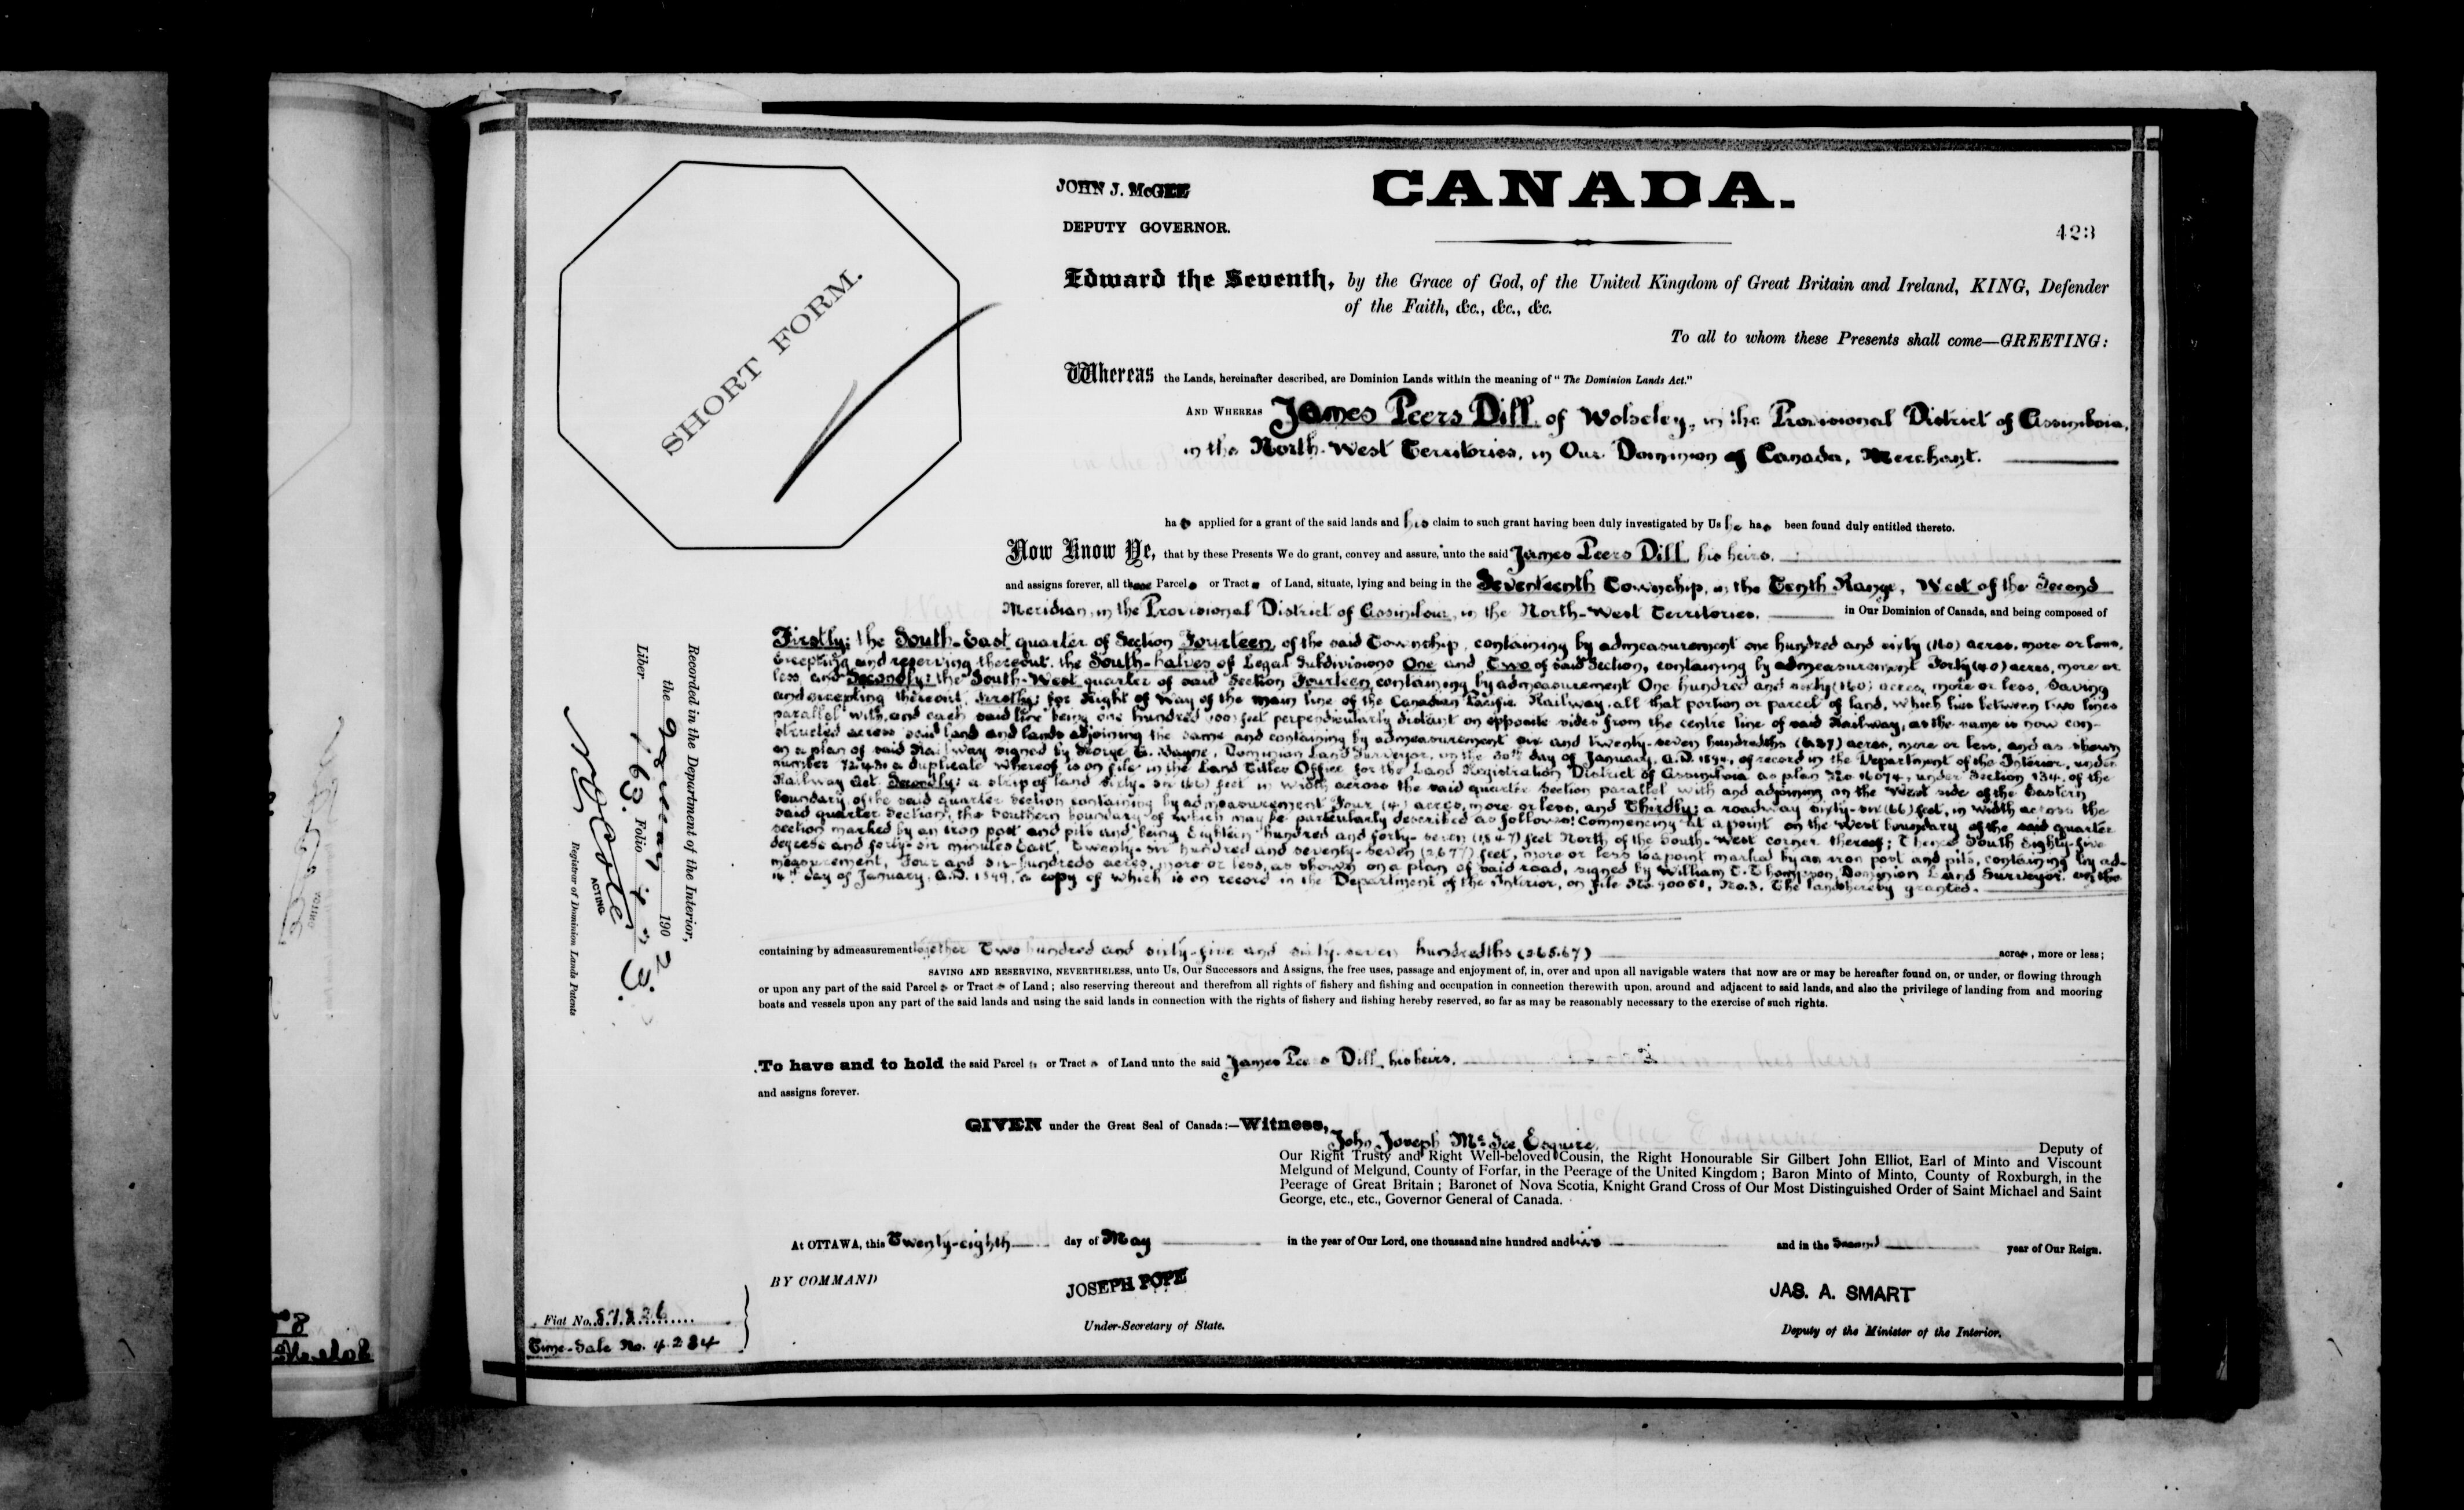 JOHN J. McGEE
DEPUTY GOVERNOR.
CANADA.
423
SHORT FORM.
Edward the Seventh, by the Grace of God, of the United Kingdom of Great Britain and Ireland, KING, Defender
of the Faith, &c., &c., &c.
To all to whom these Presents shall come—GREETING:
Whereas the Lands, hereinafter described, are Dominion Lands within the meaning of "The Dominion Lands Act."
AND WHEREAS James Peers Dill, of Wolseley, in the Provisional District of Assiniboia,
in the North-West Territories, in Our Dominion of Canada, Merchant.
has applied for a grant of the said lands and his claim to such grant having been duly investigated by Us he has been found duly entitled thereto.
Now Know Ye, that by these Presents We do grant, convey and assure, unto the said James Peers Dill, his heirs,
and assigns forever, all those Parcels or Tracts of Land, situate, lying and being in the Seventeenth Township, in the Tenth Range, West of the Second
Meridian, in the Provisional District of Assiniboia, in the North-West Territories, in Our Dominion of Canada, and being composed of
Firstly: the South-East quarter of Section Fourteen, of the said Township, containing by admeasurement one hundred and sixty (160) acres, more or less,
excepting and reserving thereout, the South-halves of Legal Subdivisions One and Two of said Section, containing by admeasurement Forty (40) acres, more or
less, and Secondly: the South-West quarter of said Section Fourteen, containing by admeasurement One hundred and sixty (160) acres, more or less, Saving
and excepting thereout, Firstly: for Right of Way of the main line of the Canadian Pacific Railway, all that portion or parcel of land, which lies between two lines
parallel with, and each said line being one hundred (100) feet perpendicularly distant on opposite sides from the centre line of said Railway, as the same is now con-
structed across said land and lands adjoining the same and containing by admeasurement six and twenty-seven hundredths (6.27) acres, more or less, and as shown
on a plan of said Railway signed by George C. Wayne, Dominion Land Surveyor, on the 30th day of January, A.D. 1894, of record in the Department of the Interior, under
number 72430 a duplicate whereof is on file in the Land Titles Office for the Land Registration District of Assiniboia as plan No. 16074, under Section 134, of the
Railway Act. Secondly: a strip of land sixty-six (66) feet in width across the said quarter Section parallel with and adjoining on the West side of the Eastern
boundary of the said quarter section containing by admeasurement Four (4) acres, more or less, and Thirdly: a roadway sixty-six (66) feet, in width across the
said quarter Section, the Southern boundary of which may be particularly described as follows: Commencing at a point on the West boundary of the said quarter
section marked by an iron post and pits and being Eighteen hundred and forty-seven (1847) feet North of the South-West corner thereof; Thence South Eighty-five
degrees and forty-six minutes East, Twenty-six hundred and seventy-seven (2677) feet, more or less to a point marked by an iron post and pits, containing by ad-
measurement, Four and six-hundreds acres, more or less, as shown on a plan of said road, signed by William T. Thompson, Dominion Land Surveyor, on the
14th day of January, A.D. 1899, a copy of which is on record in the Department of the Interior, on file No. 90051, No. 3. The lands hereby granted,
containing by admeasurement together Two hundred and sixty-five and sixty-seven hundredths (265.67) acres, more or less;
SAVING AND RESERVING, NEVERTHELESS, unto Us, Our Successors and Assigns, the free uses, passage and enjoyment of, in, over and upon all navigable waters that now are or may be hereafter found on, or under, or flowing through
or upon any part of the said Parcels or Tracts of Land; also reserving thereout and therefrom all rights of fishery and fishing and occupation in connection therewith upon, around and adjacent to said lands, and also the privilege of landing from and mooring
boats and vessels upon any part of the said lands and using the said lands in connection with the rights of fishery and fishing hereby reserved, so far as may be reasonably necessary to the exercise of such rights.
To have and to hold the said Parcels or Tracts of Land unto the said James Peers Dill, his heirs,
and assigns forever.
GIVEN under the Great Seal of Canada:—Witness,
John Joseph McGee Esquire, Deputy of
Our Right Trusty and Right Well-beloved Cousin, the Right Honourable Sir Gilbert John Elliot, Earl of Minto and Viscount
Melgund of Melgund, County of Forfar, in the Peerage of the United Kingdom; Baron Minto of Minto, County of Roxburgh, in the
Peerage of Great Britain; Baronet of Nova Scotia, Knight Grand Cross of Our Most Distinguished Order of Saint Michael and Saint
George, etc., etc., Governor General of Canada.
At OTTAWA, this Twenty-eighth day of May in the year of Our Lord, one thousand nine hundred and two and in the Second year of Our Reign.
BY COMMAND
JOSEPH POPE
Under-Secretary of State.
JAS. A. SMART
Deputy of the Minister of the Interior.
Fiat No. 57226
Time-Sale No. 4234
Recorded in the Department of the Interior,
the 1902
Liber 163. Folio 423.
ACTING
Registrar of Dominion Lands Patents